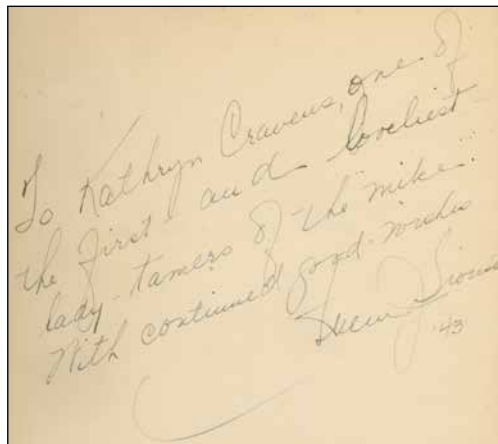 To Kathryn Cravens, one of
the first and loveliest
lady-tamers of the mike.
With continued good wishes
'43